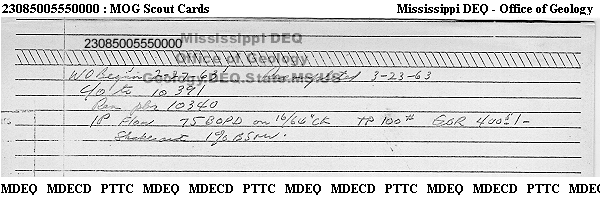 23085005550000 : MOG Scout Cards Mississippi DEQ - Office of Geology
23085005550000 Mississippi DEQ
Office of Geology
Geology.DEQ.State.MS.US
WO Begin 3-23-63
C/O to 10391
Ran pkr 10340
IP Flow 75 BOPD on 16/64" CK TP 100# GOR 400:1
Shakeout 1% BS+W.
MDEQ MDECD PTTC MDEQ MDECD PTTC MDEQ MDECD PTTC MDEQ MDECD PTTC MDEQ